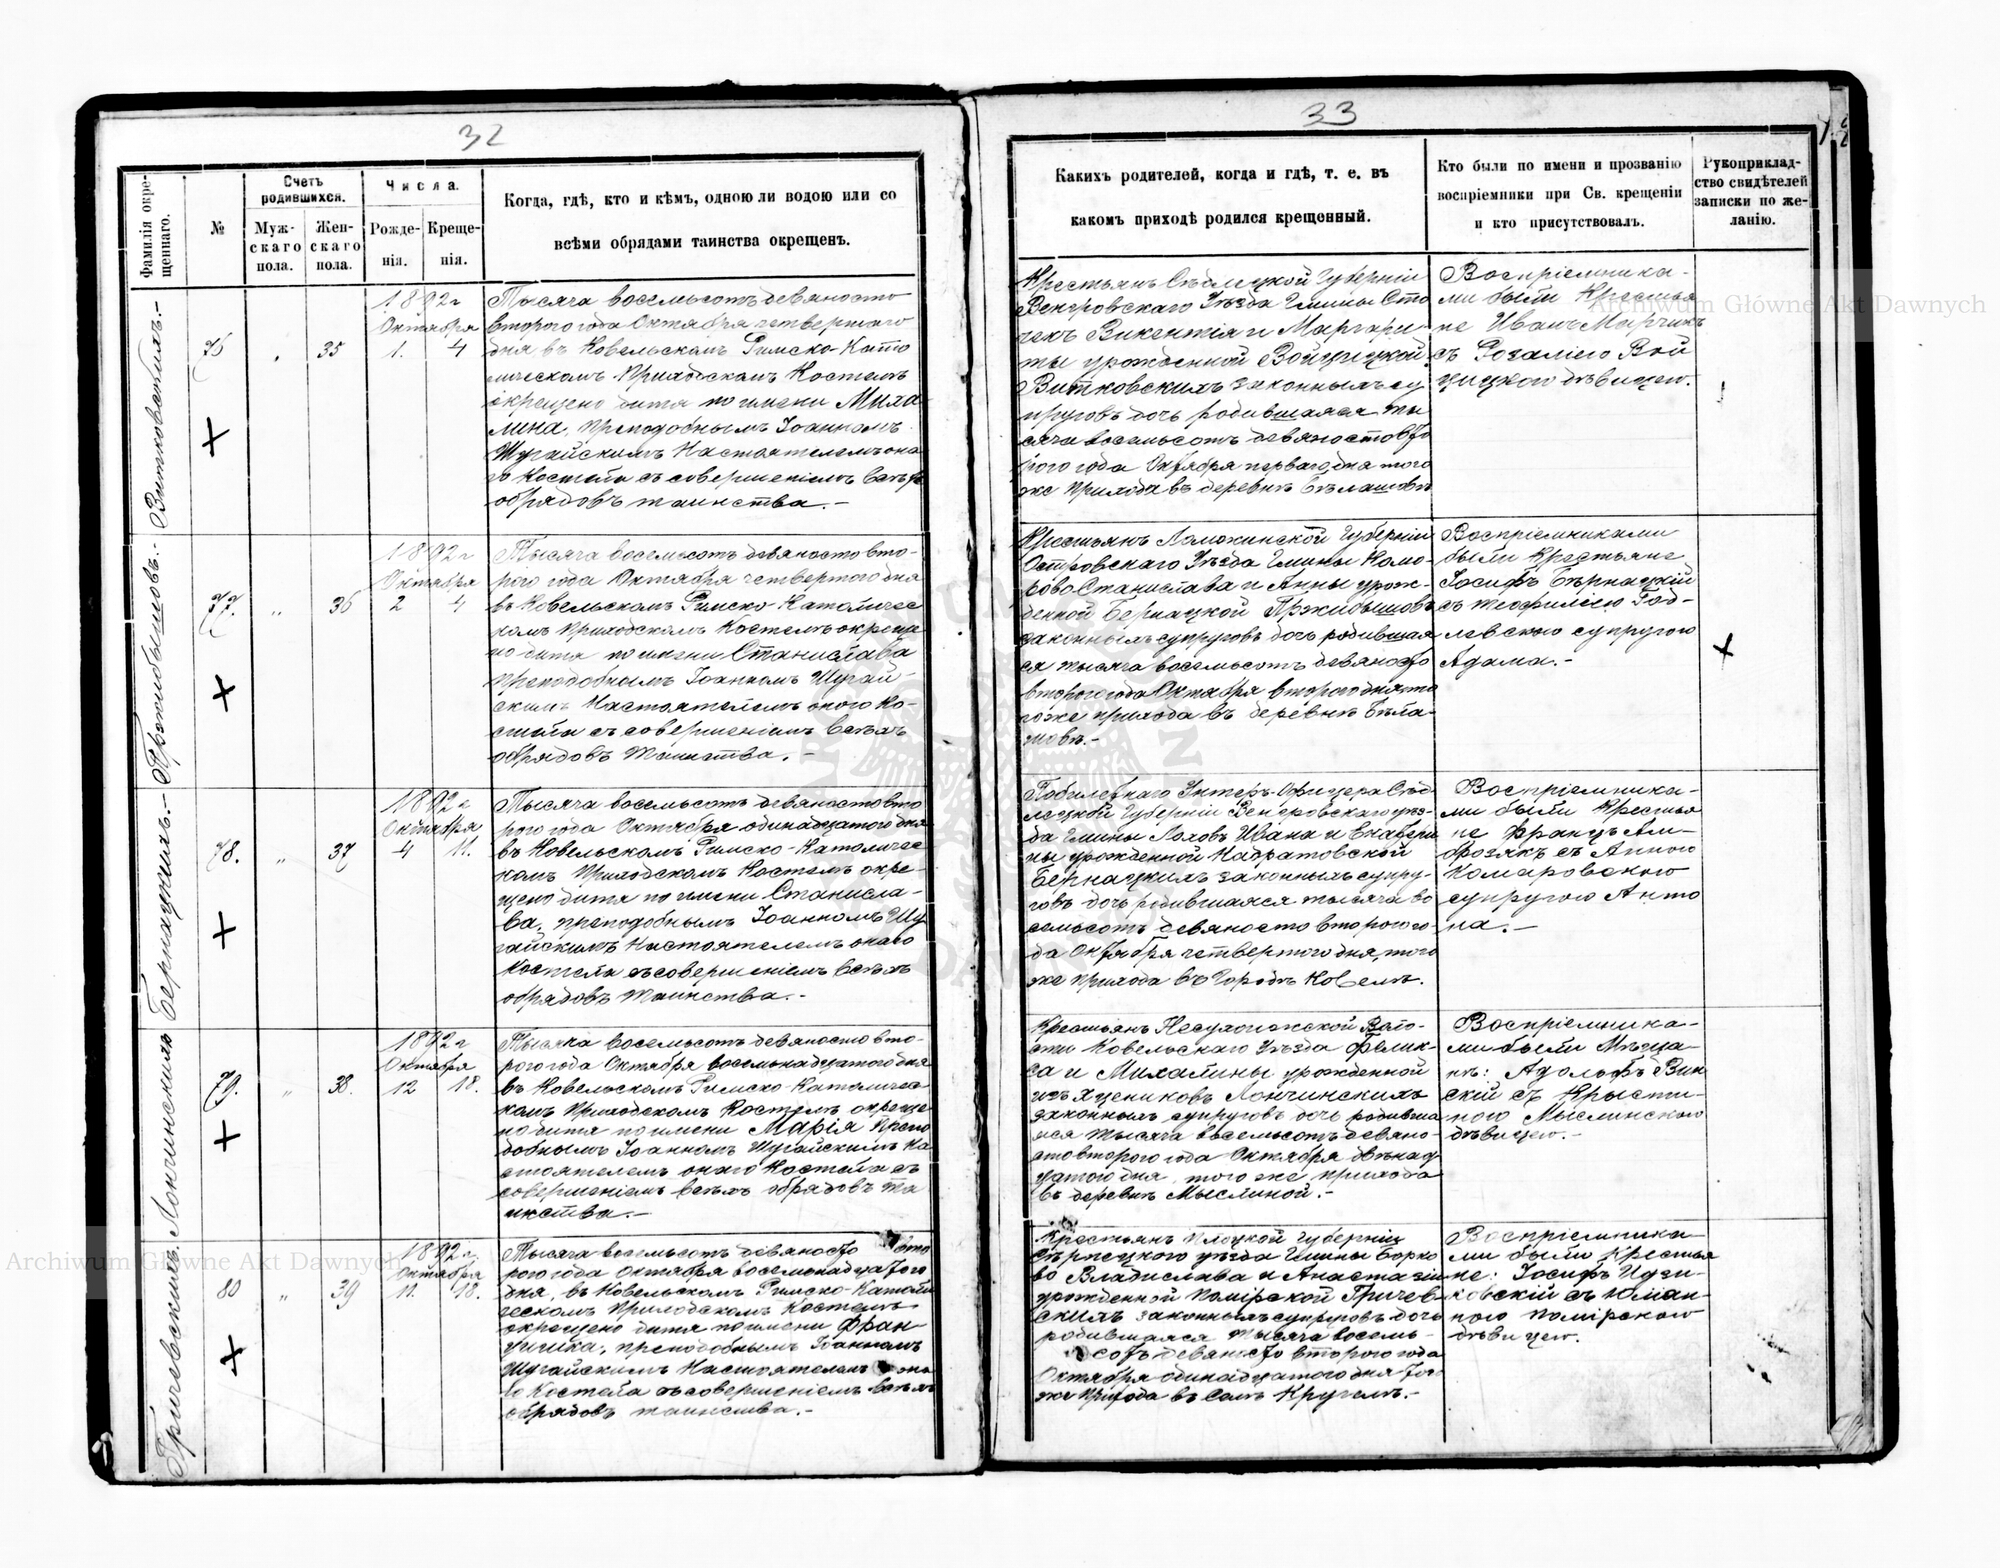 32
Фамилія окре-
щеннаго.
№
Счетъ
родившихся.
Муж-
скаго
пола.
Жен-
скаго
пола.
Числа.
Рожде-
нія.
Креще-
нія.
Когда, гдѣ, кто и кѣмъ, одною ли водою или со
всѣми обрядами таинства окрещенъ.
Витковскихъ.-
76
35
1892 г
Октября
1. 4
Тысяча восемьсотъ девяносто
второго года Октября четвертаго
дня въ Ковельскомъ Римско-Като
лическомъ Приходскомъ Костелѣ
окрещено дитя по имени Миха
лина, преподобнымъ Іоанномъ
Шугайскимъ Настоятелемъ она
го Костела съ совершеніемъ всѣхъ
обрядовъ таинства.-
Пржибышовъ.-
77.
"
36
1892 г
Октября
2 4
Тысяча восемьсотъ девяносто вто-
рого года Октября четвертого дня
въ Ковельскомъ Римско-Католичес
комъ Приходскомъ Костелѣ окреще
но дитя по имени Станислава
преподобнымъ Іоанномъ Шугай-
скимъ Настоятелемъ оного Ко-
стела съ совершеніемъ всѣхъ
обрядовъ Таинства.-
Бернацкихъ.-
78.
"
37
1892 г
Октября
4 11.
Тысяча восемьсотъ девяносто вто
рого года Октября одинадцатого дня
въ Ковельскомъ Римско-Католичес
комъ Приходскомъ Костелѣ окре-
щено дитя по имени Станисла-
ва, преподобнымъ Іоанномъ Шу
гайскимъ Настоятелемъ онаго
Костела съ совершеніемъ всѣхъ
обрядовъ Таинства.-
Лончинскихъ
79.
"
38.
1892 г
Октября
12 18.
Тысяча восемьсотъ девяносто вто-
рого года Октября восемнадцатого дня
въ Ковельскомъ Римско-Католичес-
комъ Приходскомъ Костелѣ окреще
но дитя по имени Марія Препо
добнымъ Іоанномъ Шугайскимъ На
стоятелемъ онаго Костела съ
совершеніемъ всѣхъ обрядовъ Та
инства.-
Гричевскихъ.
80
"
39
1892 г.
Октября
11. 18.
Тысяча восемьсотъ девяносто вто
рого года Октября восемнадцатого
дня, въ Ковельскомъ Римско-Католи
ческомъ Приходскомъ Костелѣ
окрещено дитя по имени Фран
цишка, преподобнымъ Іоанномъ
Шугайскимъ Настоятелемъ она
го Костела съ совершеніемъ всѣхъ
обрядовъ таинства.-
33
Какихъ родителей, когда и гдѣ, т. е. въ
какомъ приходѣ родился крещенный.
Кто были по имени и прозванію
воспріемники при Св. крещеніи
и кто присутствовалъ.
Рукоприклад-
ство свидѣтелей
записки по же-
ланію.
Крестьянъ Сѣдлецкой Губерніи
Венгровскаго Уѣзда Гмины Сто
чекъ Викентія и Маргари-
ты урожденной Войцицкой
Витковскихъ законныхъ су
пруговъ дочь родившаяся ты
сяча восемьсотъ девяносто вто
рого года Октября перваго дня того
же Прихода въ деревнѣ Бѣлашовѣ
Воспріемника-
ми были Крестья
не Иванъ Марчикъ
съ Розаліею Вой
цицкою дѣвицею.
Крестьянъ Ломжинской Губерніи
Островскаго Уѣзда Гмины Комо-
рово Станислава и Анны урож-
денной Бернацкой Пржибышовъ
законныхъ супруговъ дочь родившая
ся тысяча восемьсотъ девяносто
второго года Октября второго дня то
гоже прихода въ деревнѣ Бѣла-
шовѣ.-
Воспріемниками
были Крестьяне
Іосифъ Бернацкій
съ Теофиліею Год-
левскою супругою
Адама.-
Гобилетнаго Унтеръ-Офицера Сѣд
лецкой Губерніи Венгровскаго уѣз-
да Гмины Лоховъ Ивана и Екатери
ны урожденной Надратовской
Бернацкихъ законныхъ супру-
говъ дочь родившаяся тысяча во
семьсотъ девяносто второго го-
да Октября четвертого дня, того
же прихода въ Городѣ Ковелѣ.
Воспріемника-
ми были Крестья
не Францъ Ам-
брозякъ съ Анною
Комаровскою
супругою Анто
на.-
Крестьянъ Несухоижской Воло-
сти Ковельскаго Уѣзда Фелик-
са и Михалины урожденной
изъ Яцениковъ Лончинскихъ
законныхъ супруговъ дочь родивша
яся тысяча восемьсотъ девяно-
сто второго года Октября двѣнад
цатого дня, того же прихода
въ деревнѣ Мыслиной.-
Воспріемника-
ми были Мѣща-
нѣ: Адольфъ Вин
скій съ Крысти-
ною Мыслинскою
дѣвицею.-
Крестьянъ Плоцкой Губерніи
Сѣрпецкого уѣзда Гмины Борко
во Владислава и Анастазіи
урожденной Помірской Гричев
скихъ законныхъ супруговъ дочь
родившаяся тысяча восемь-
сотъ девяносто второго года
Октября одинадцатого дня то-
же Прихода въ селѣ Кругелѣ.-
Воспріемника
ми были Крестья
не: Іосифъ Идзи-
ковскій съ Юлиан-
ною Помірскою
дѣвицею.
Archiwum Główne Akt Dawnych
Archiwum Główne Akt Dawnych